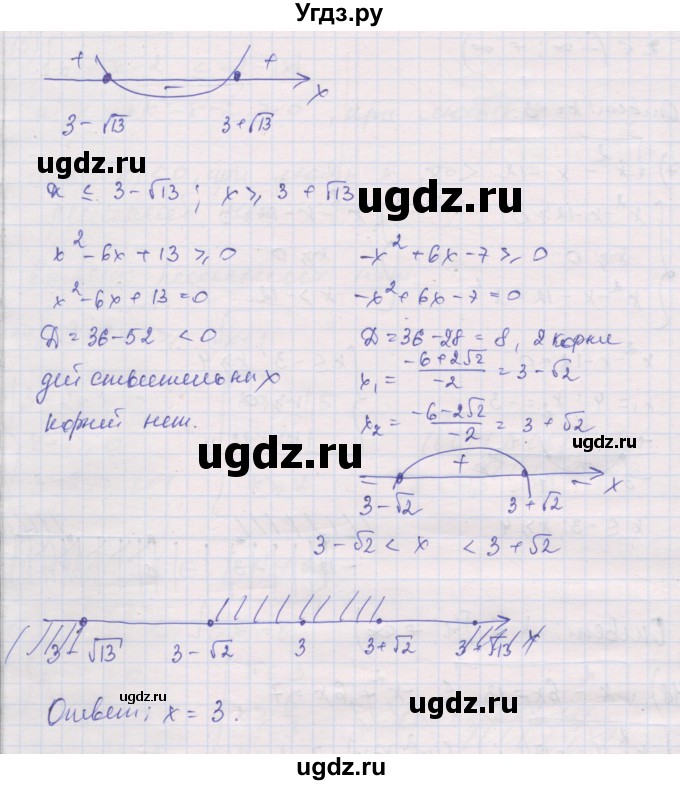 Угдз.ру
+ − + x
3 − √13 3 + √13
ugdz.ru
x ≤ 3 − √13 ; x ≥ 3 + √13
ugdz.ru
x² − 6x + 13 ≥ 0
x² − 6x + 13 = 0
D = 36 − 52 < 0
действительных
корней нет.
−x² + 6x − 7 ≥ 0
−x² + 6x − 7 = 0
D = 36 − 28 = 8, 2 корня
x₁ = (−6 + 2√2)/−2 = 3 − √2
x₂ = (−6 − 2√2)/−2 = 3 + √2
ugdz.ru
ugdz.ru
− + − x
3 − √2 3 + √2
3 − √2 < x < 3 + √2
3 − √13 3 − √2 3 3 + √2 3 + √13 x
ugdz.ru
Ответ: x = 3.
ugdz.ru
ugdz.ru
ugdz.ru